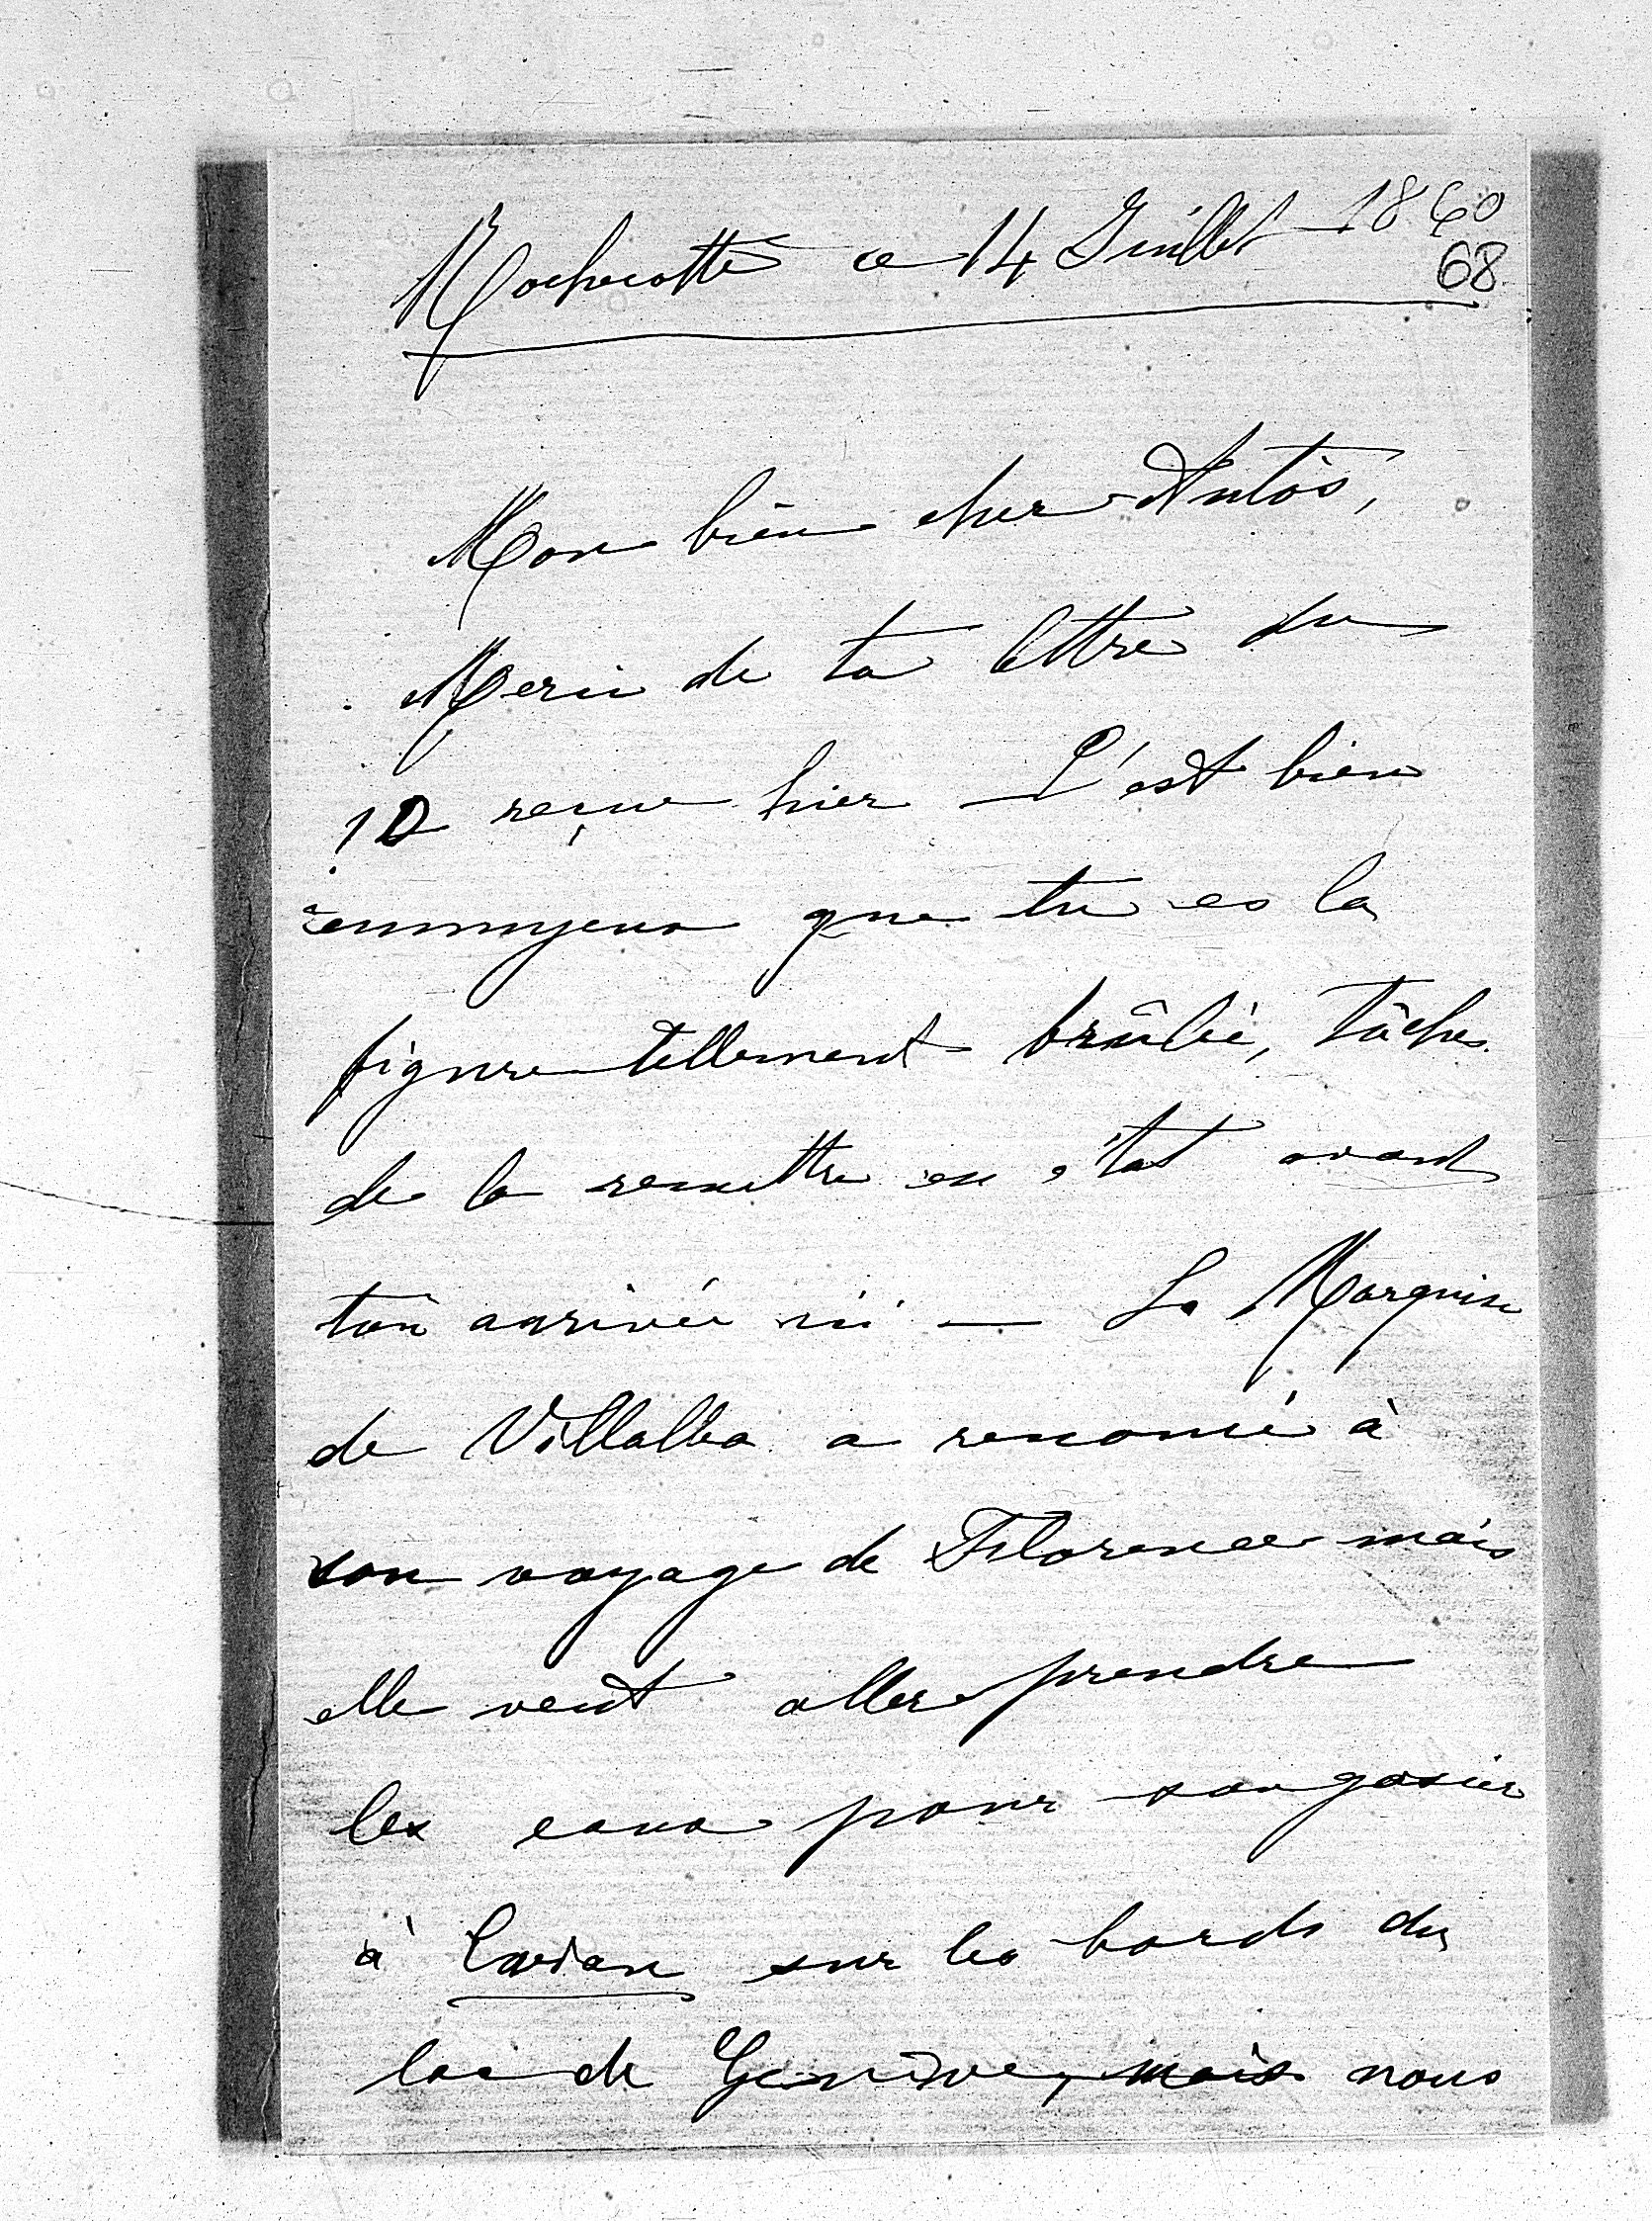 Rochecotte ce 14 Juillet 1860
68
Mon bien cher Antos,
Merci de ta lettre du
10 reçue hier — C'est bien
ennuyeux que tu es la
figure tellement brûlée, tâche
de la remettre en état avant
ton arrivée ici — La Marquise
de Villalba a renoncé à
son voyage de Florence mais
elle veut aller prendre
les eaux pour son gosier
à Evian sur les bords du
lac de Genève, mais nous